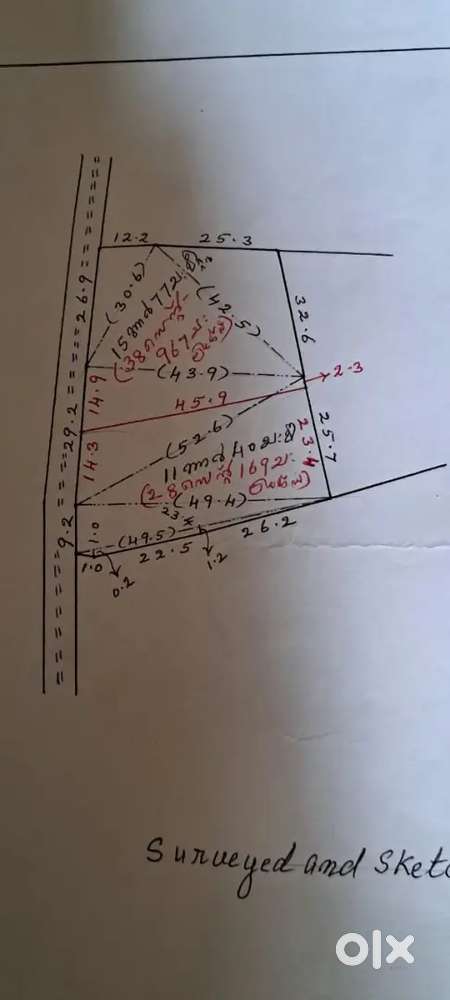 12.2
25.3
26.9
(30.6)
(42.5)
32.6
15 ആർ 77 ച.മീ
(38 സെന്റ്
967 ച:
(43.9)
2.3
14.9
45.9
29.2
14.3
(52.6)
25.7
23.4
11 ആർ 40 ച.മീ
(28 സെന്റ് 169 ച:
(49.4)
9.2
1.0
(49.5)
26.2
1.0
22.5
1.2
0.2
Surveyed and Sketc
olx